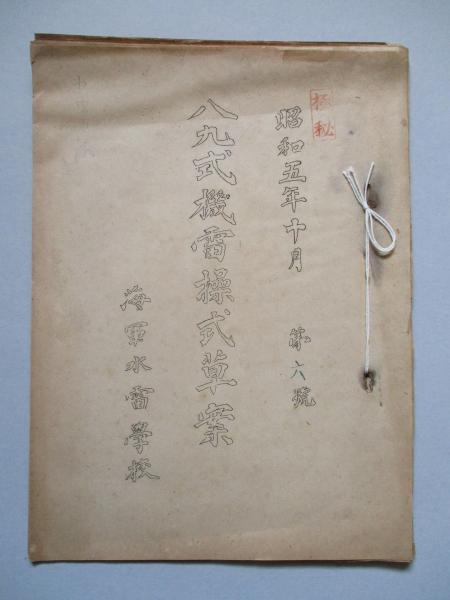 極秘
昭和五年十月 第六號
八九式機雷操式草案
海軍水雷學校